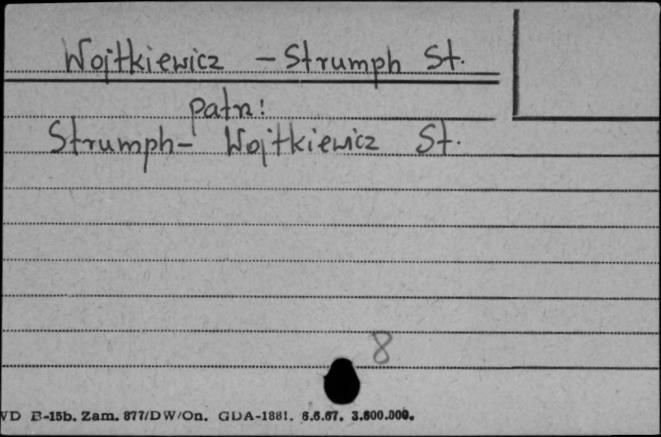 Wojtkiewicz - Strumph St.
patrz:
Strumph- Wojtkiewicz St.
8
VD B-15b. Zam. 877/DW/On. GDA-1881. 6.6.67. 3.600.000.